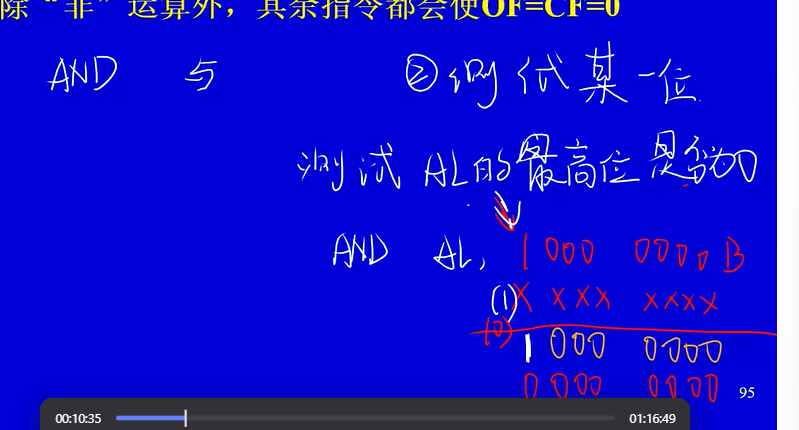 除“非”运算外，其余指令都会使OF=CF=0
AND 与 ②测试某一位
测试 AL的最高位是否为0
AND AL, 1000 0000B
(1) X XXX XXXX
(0)
1 000 0000
0 000 0000
95
00:10:35 01:16:49